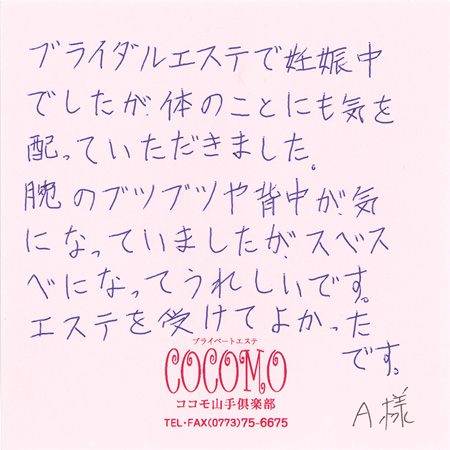 ブライダルエステで妊娠中
でしたが、体のことにも気を
配っていただきました。
腕のブツブツや背中が、気
になっていましたが、スベス
ベになってうれしいです。
エステを受けてよかった
です。
プライベートエステ
COCOMO
ココモ山手倶楽部
TEL・FAX(0773)75-6675
A様